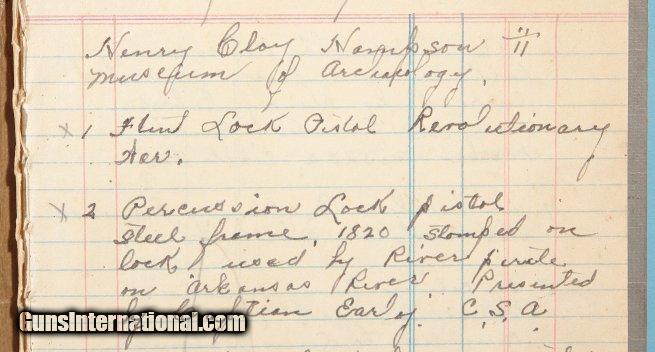 Henry Clay Hampson II
museum of Archaology.
x 1 Flint Lock Pistol Revolutionary
War.
x 2 Percussion Lock pistol
steel frame, 1820 stamped on
lock used by River pirate
on Arkansas River. Presented
by Captain Early. C.S.A
GunsInternational.com